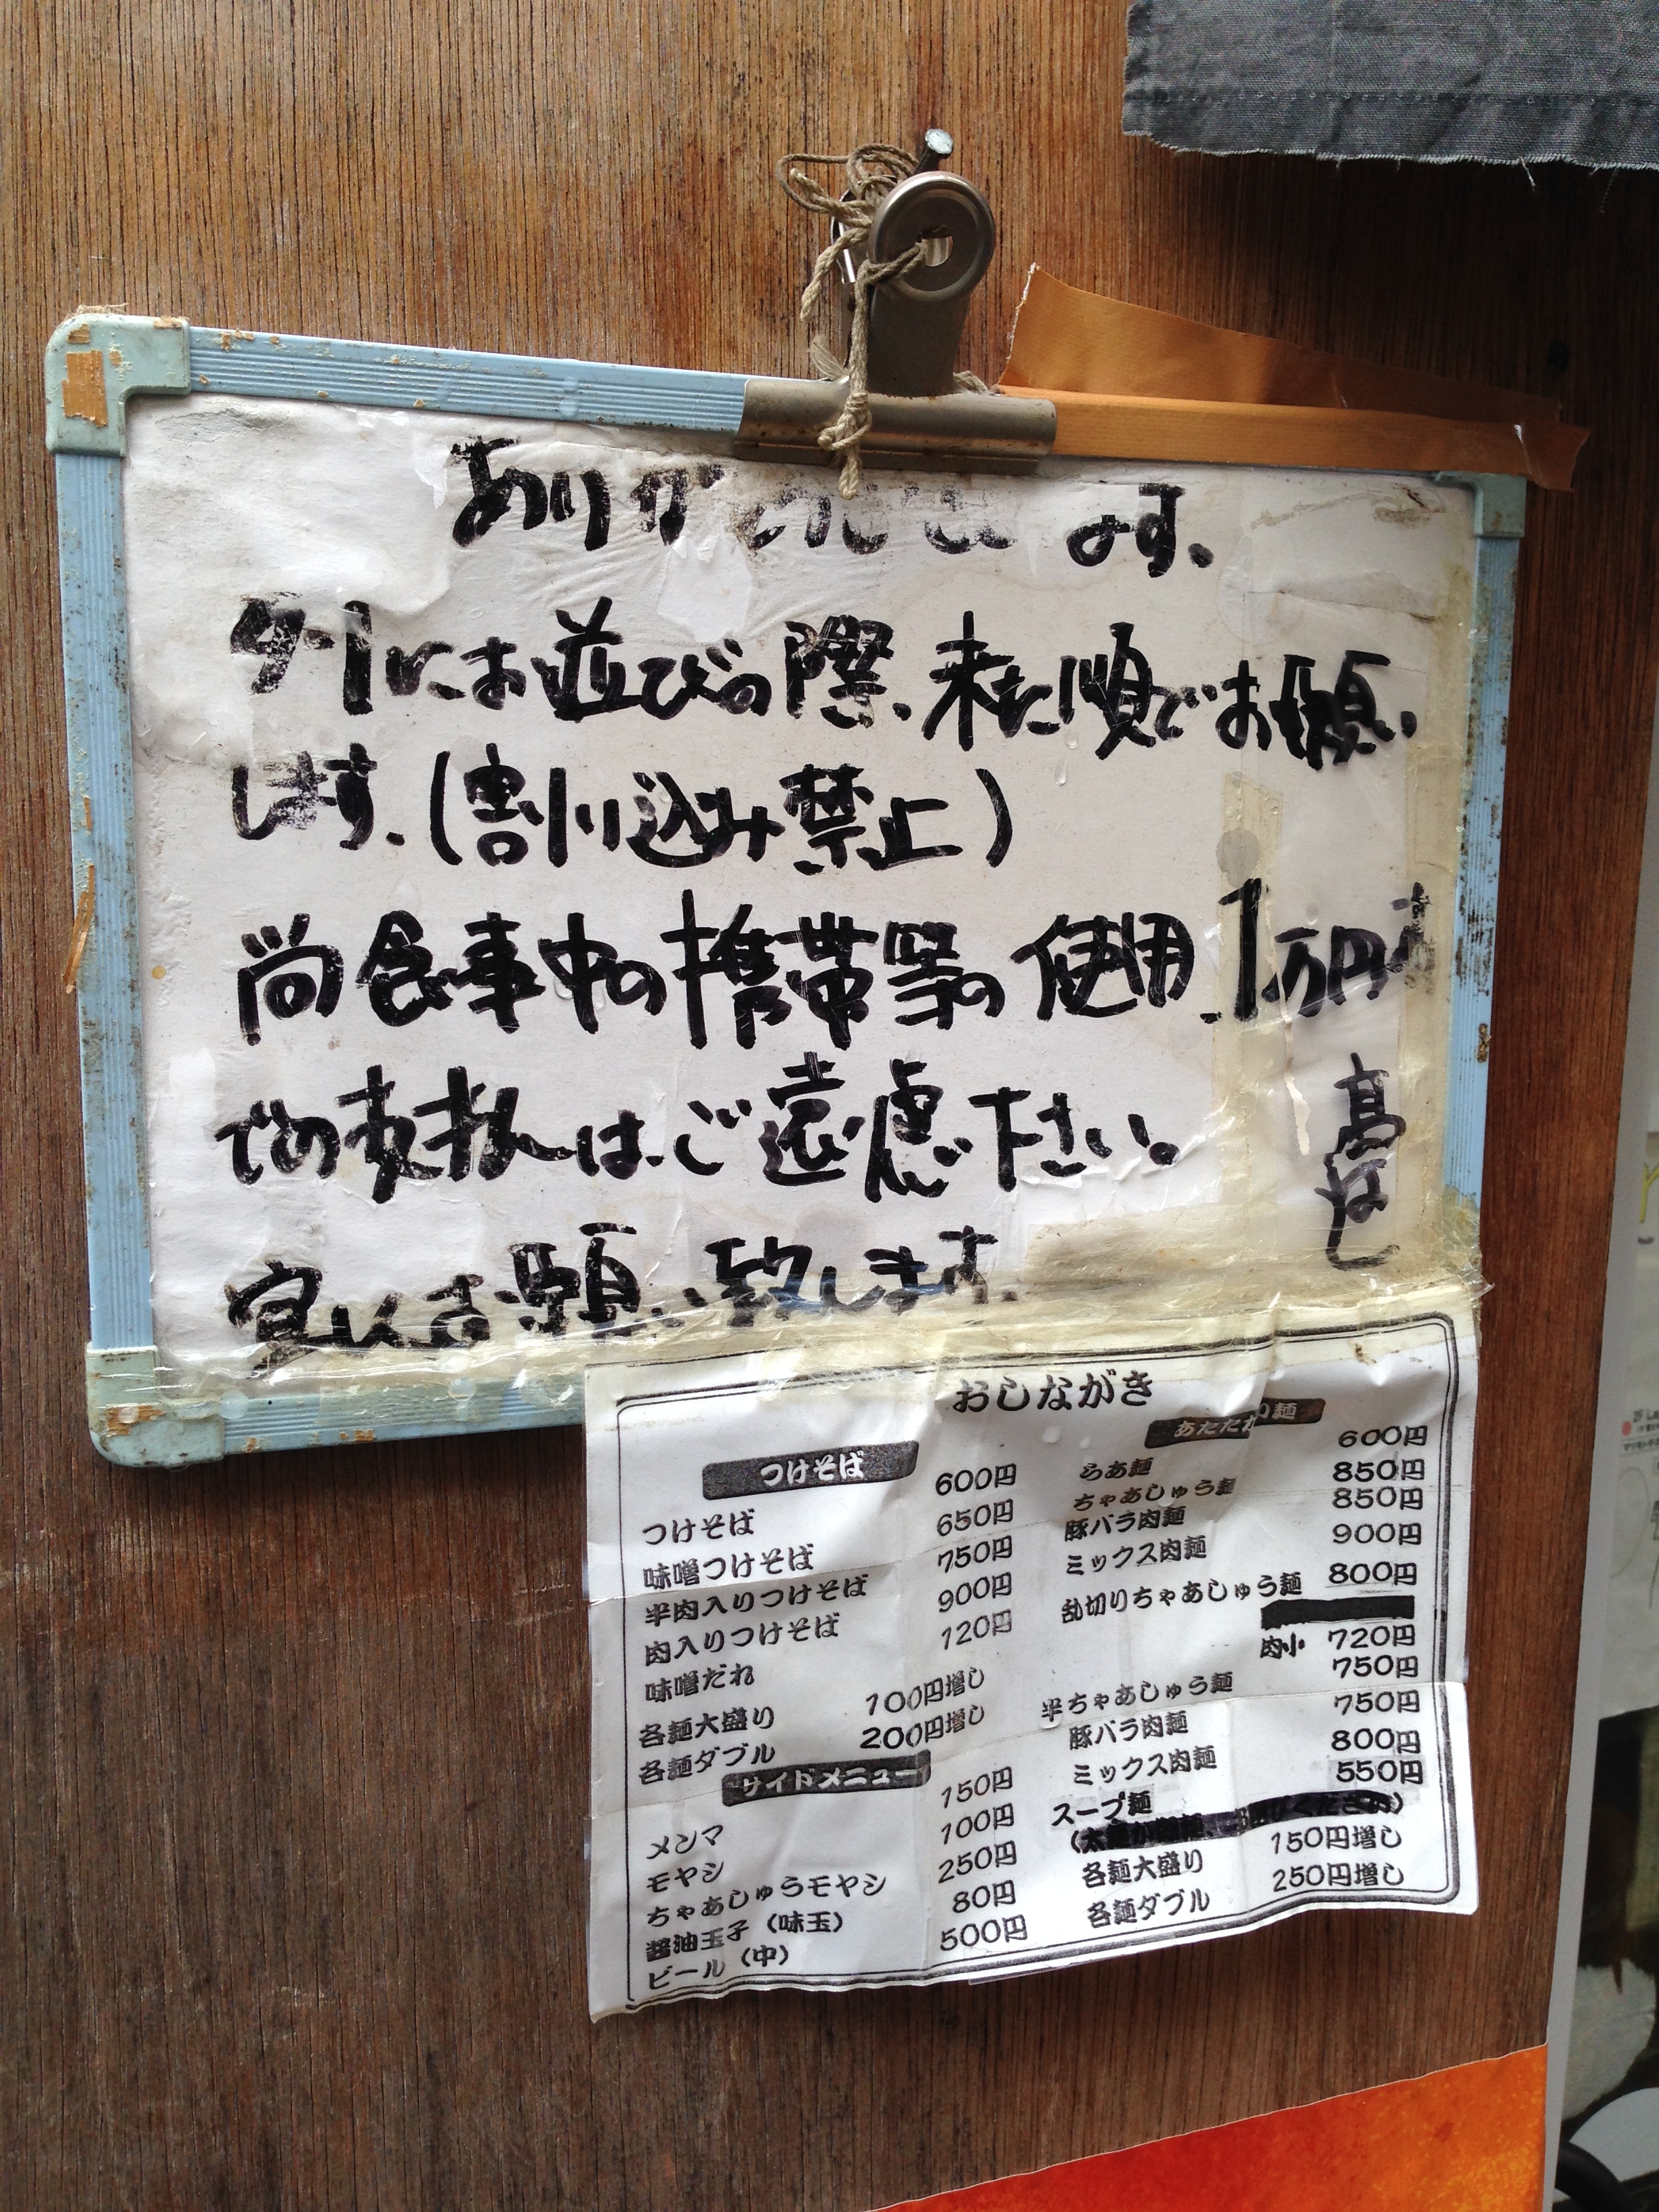 ありがとうございます。
外にお並びの際、来た順でお願い
します。(割り込み禁止)
尚食事中の携帯等の使用、1万円札
での支払はご遠慮下さい。
宜しくお願い致します。
高はし
おしながき
つけそば
つけそば 600円
味噌つけそば 650円
半肉入りつけそば 750円
肉入りつけそば 900円
味噌だれ 120円
各麺大盛り 100円増し
各麺ダブル 200円増し
サイドメニュー
メンマ 150円
モヤシ 100円
ちゃあしゅうモヤシ 250円
醤油玉子(味玉) 80円
ビール(中) 500円
あたたかい麺
らあ麺 600円
ちゃあしゅう麺 850円
豚バラ肉麺 850円
ミックス肉麺 900円
乱切りちゃあしゅう麺 800円
肉小 720円
半ちゃあしゅう麺 750円
豚バラ肉麺 750円
ミックス肉麺 800円
スープ麺 550円
各麺大盛り 150円増し
各麺ダブル 250円増し